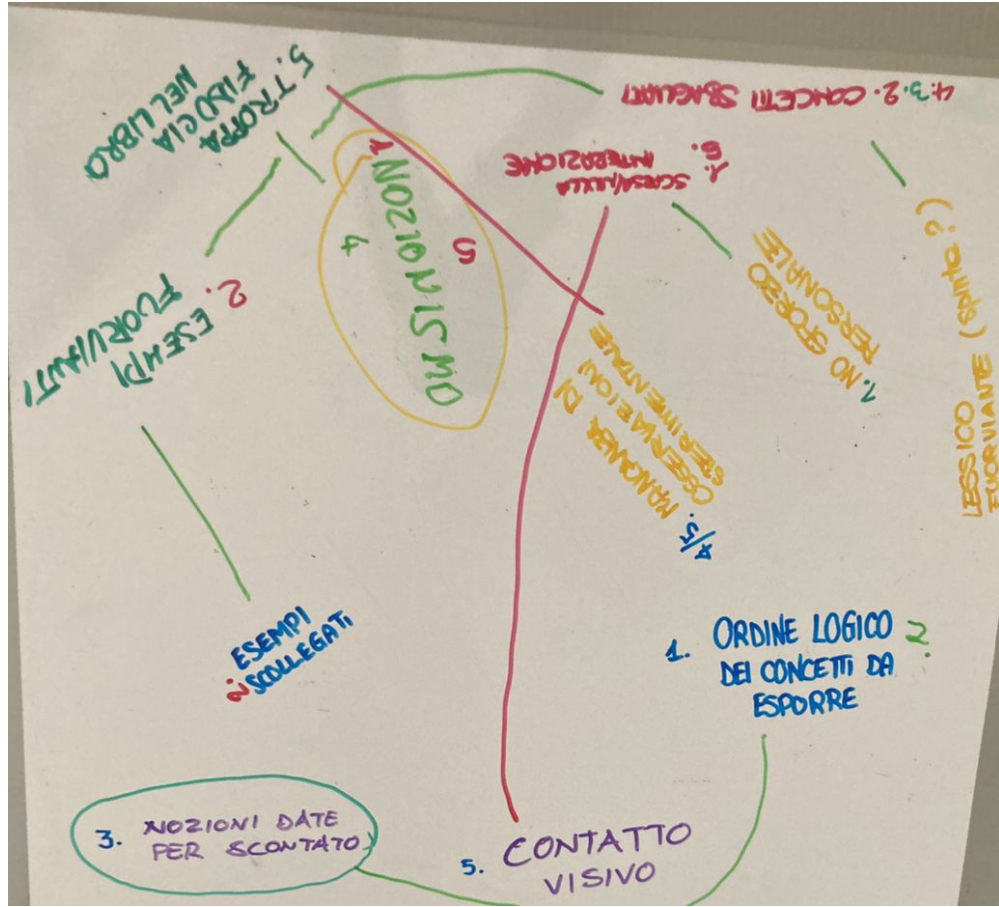 5. TROPPA
FIDUCIA
NEL LIBRO
4. 3. 2. CONCETTI SBAGLIATI
1.
6.
SCARSA/NULLA
INTERAZIONE
1
NOZIONISMO
5
4
2. ESEMPI
FUORVIANTI
7. NO SFORZO
PERSONALE
LESSICO
FUORVIANTE (spinta?)
4/5. MANCANZA DI
OSSERVAZIONI
SPERIMENTALE
ESEMPI
2. SCOLLEGATI
1. ORDINE LOGICO 2.
DEI CONCETTI DA
ESPORRE
3. NOZIONI DATE
PER SCONTATO
5. CONTATTO
VISIVO